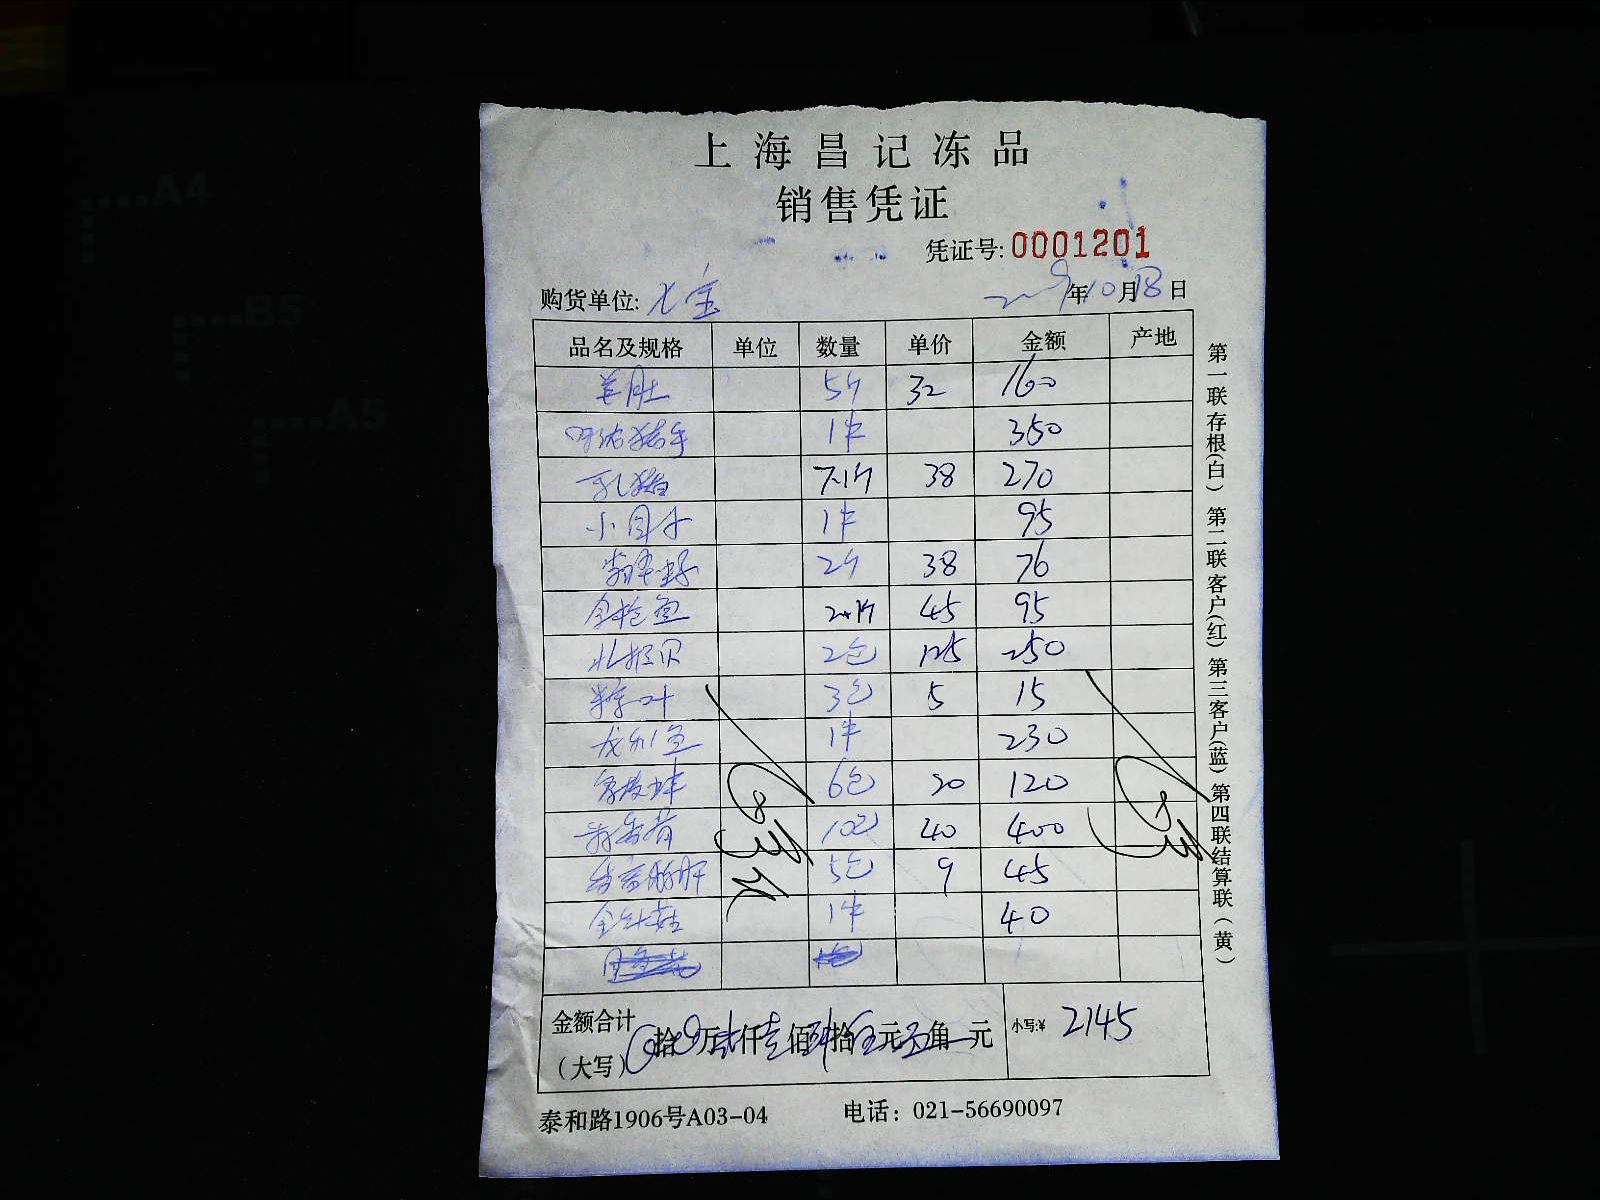 上海昌记冻品
销售凭证
凭证号: 0001201
购货单位: 七宝 2019年10月18日
品名及规格 单位 数量 单价 金额 产地
羊肚 5斤 32 160
猪手 1件 350
乳猪 7.1斤 38 270
小目子 1件 95
2斤 38 76
金枪鱼 2.1斤 45 95
北极贝 2包 125 250
粽叶 3包 5 15
龙利鱼 1件 230
6包 20 120
10包 40 400
5包 9 45
金针菇 1件 40
金额合计
(大写) 拾 万贰仟壹佰肆拾伍元 角 元
小写:¥ 2145
泰和路1906号A03-04 电话: 021-56690097
第一联存根(白) 第二联客户(红) 第三客户(蓝) 第四联结算联(黄)